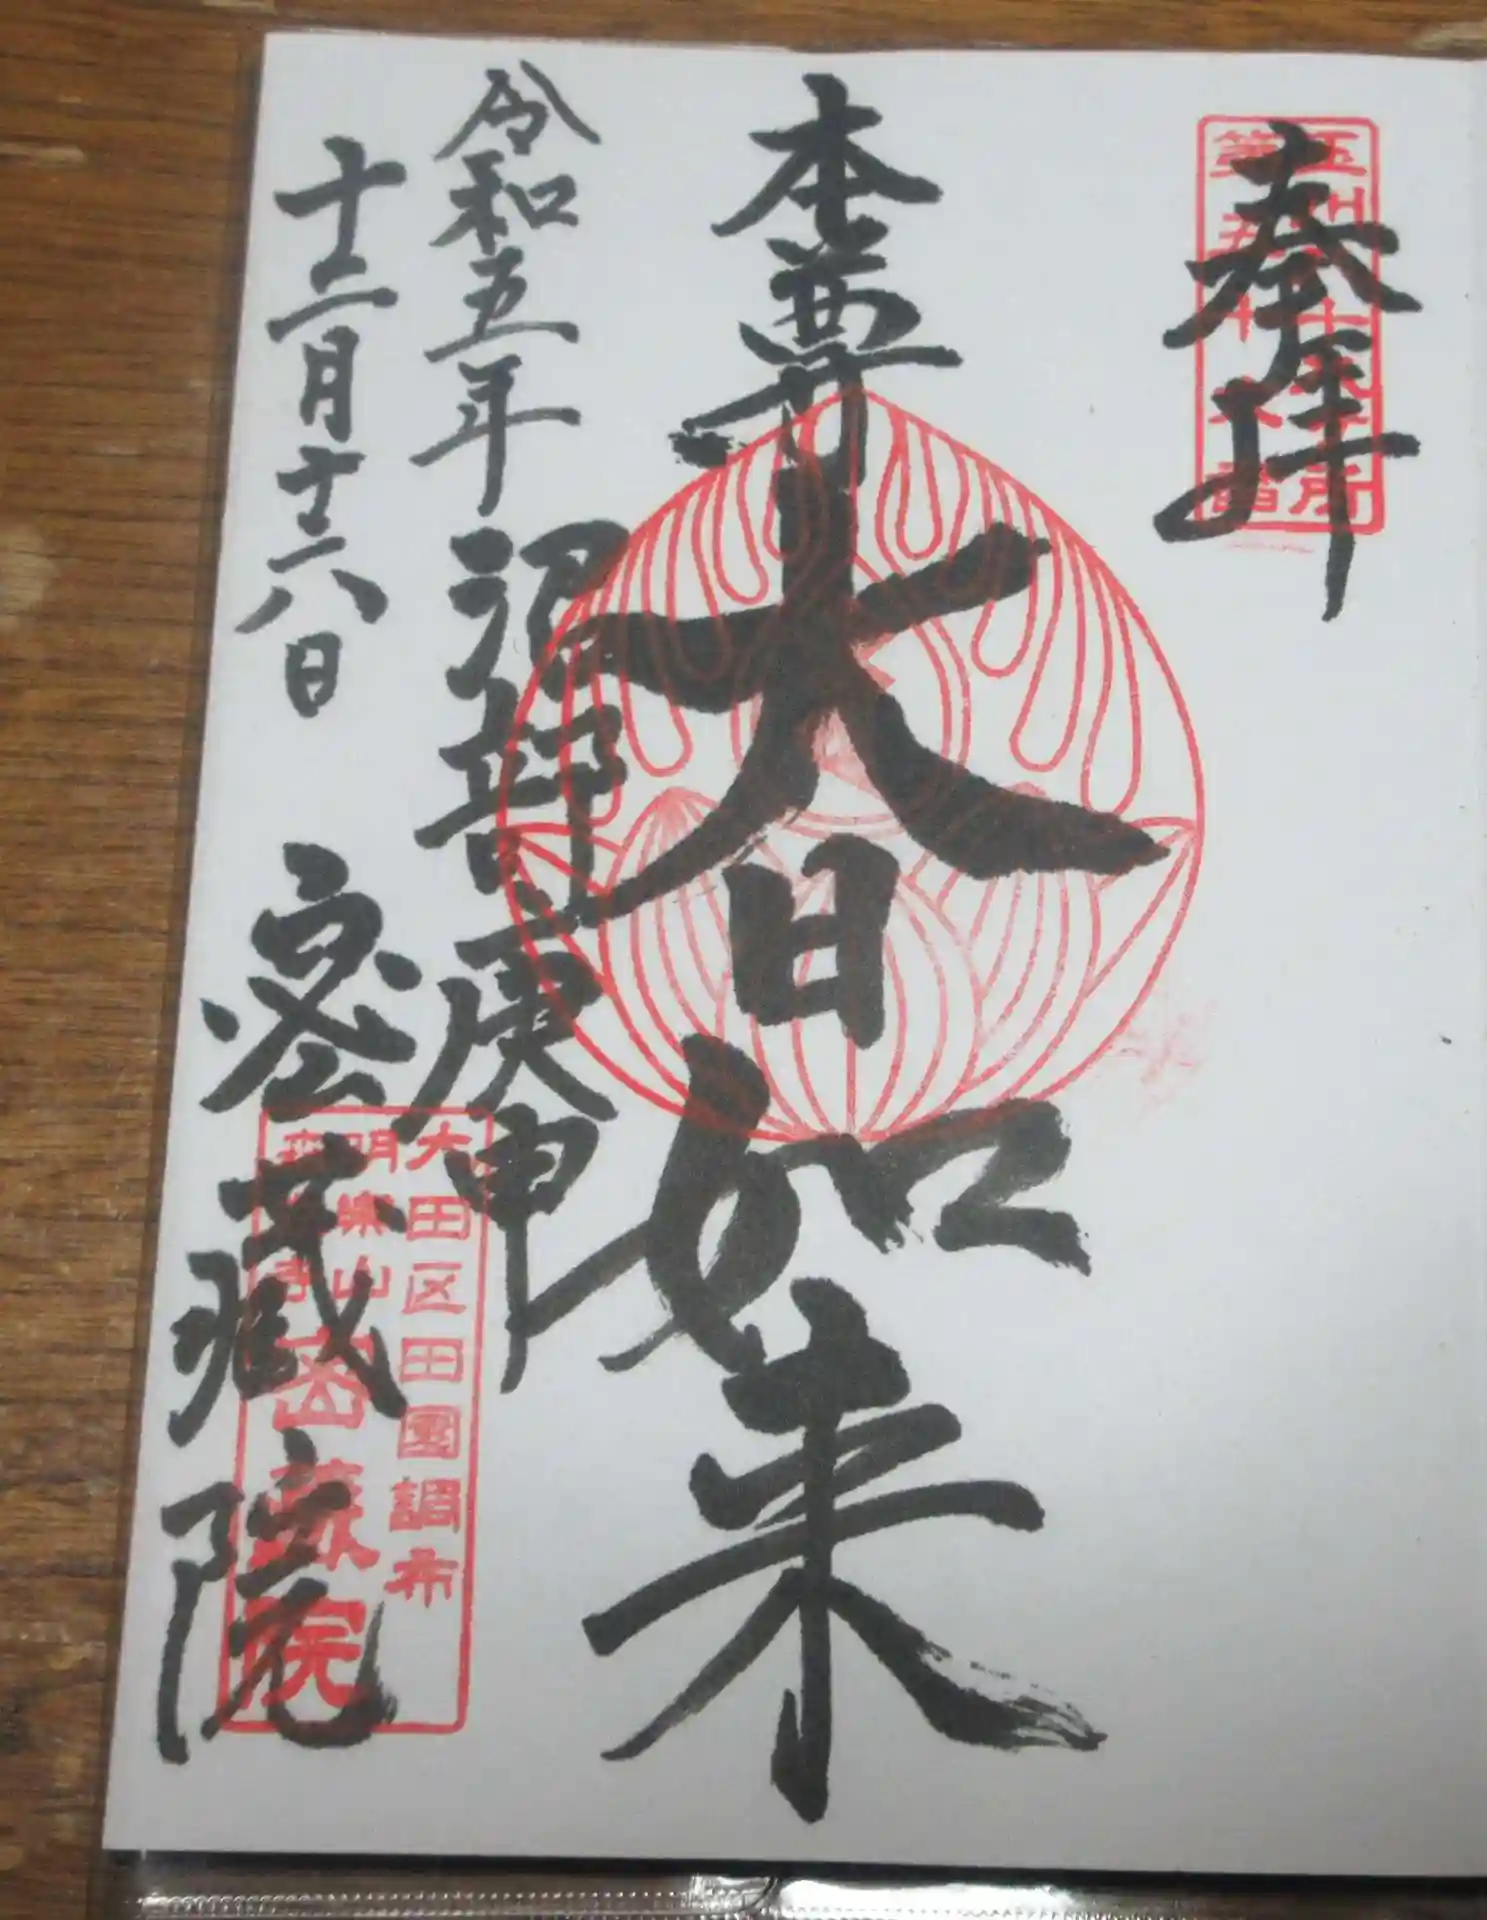 奉拝
本尊
大日如来
令和五年
十二月十六日
沼部庚申
密蔵院
大田区田園調布
明楽山
密蔵院